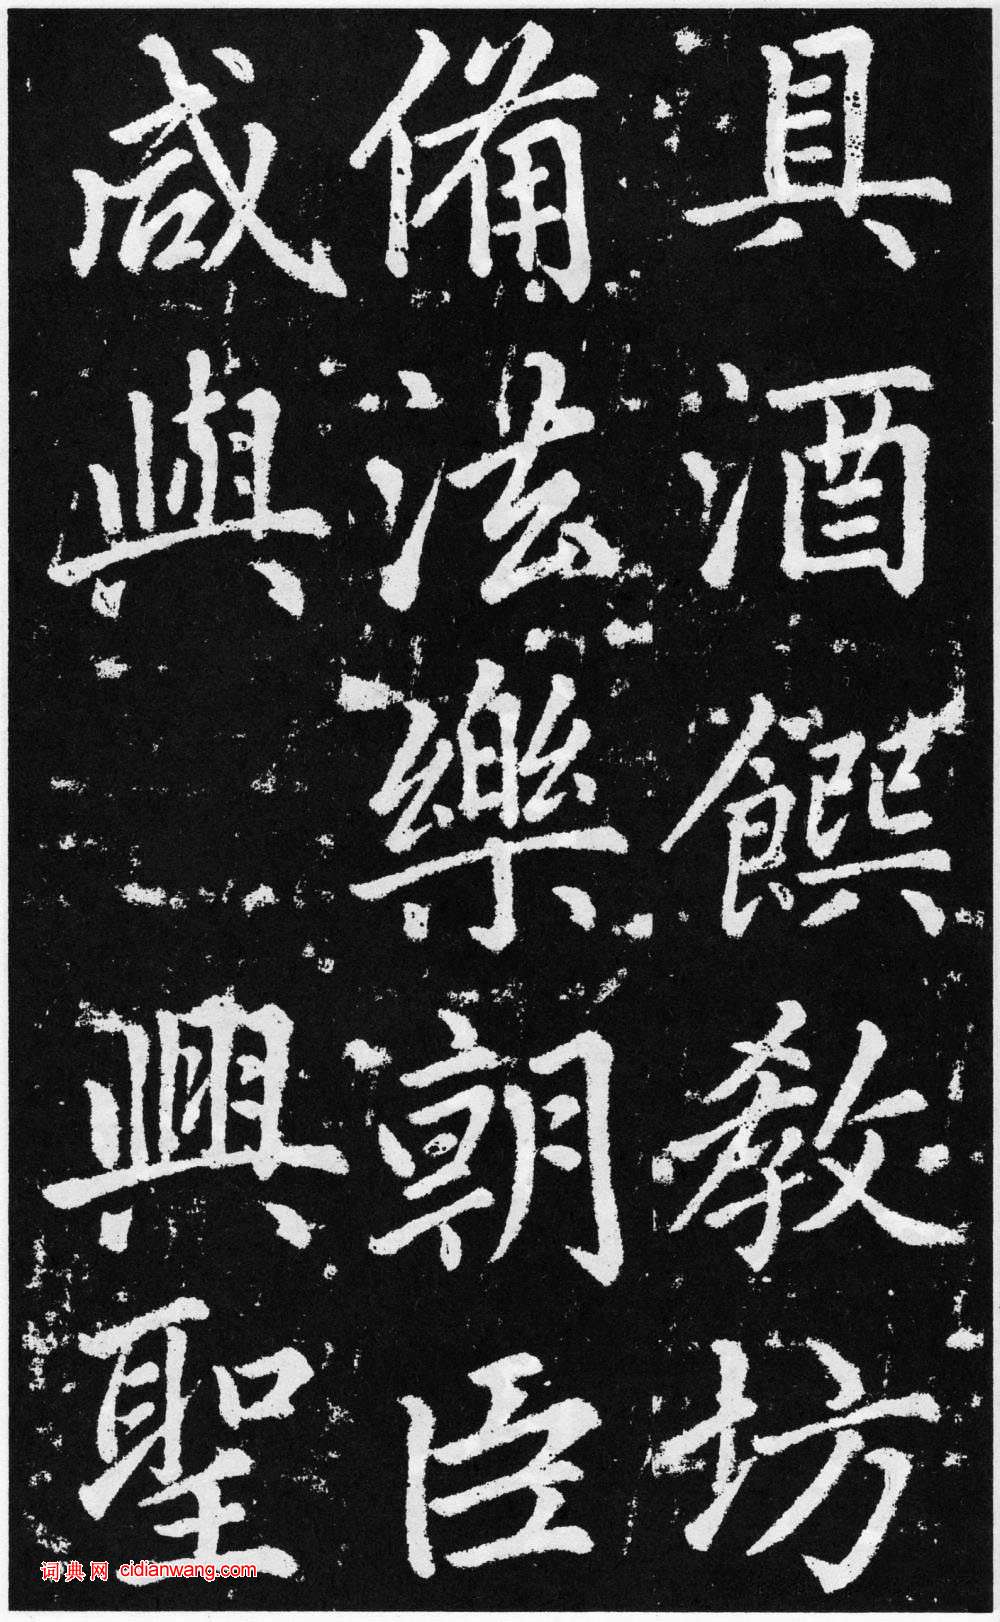 具酒饌教坊
備法樂朝臣
咸與興聖
词典网 cidianwang.com